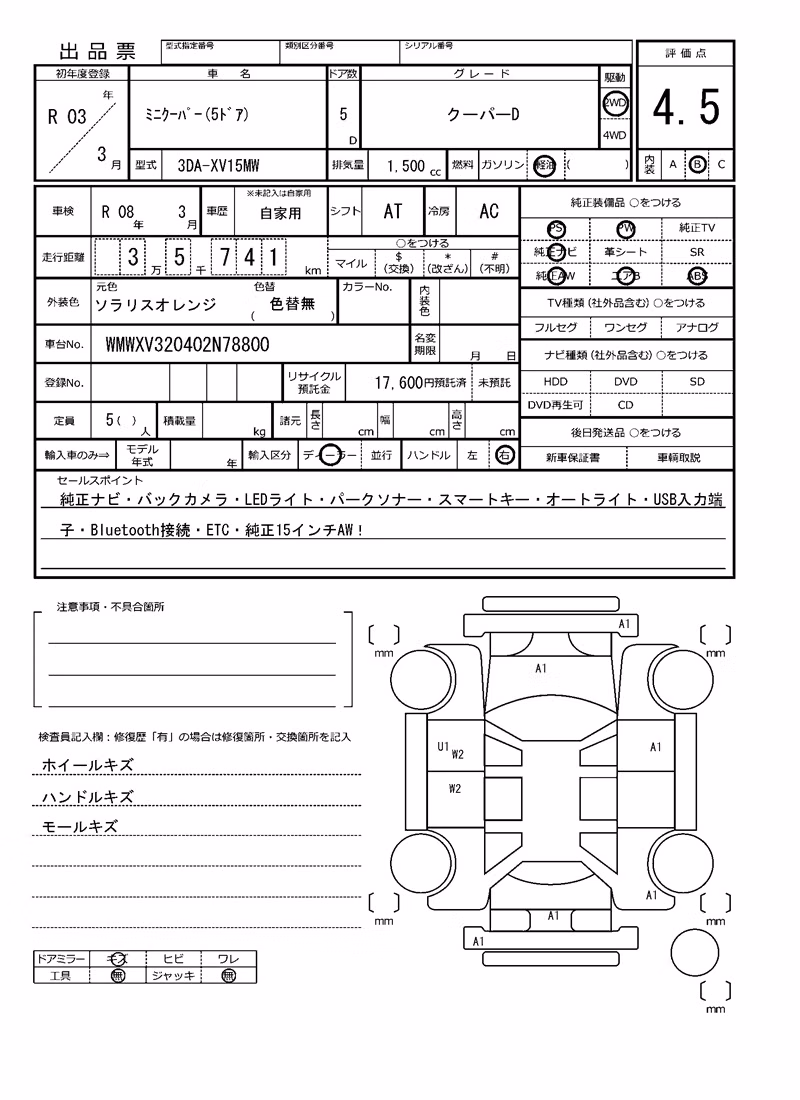 出品票 型式指定番号 類別区分番号 シリアル番号
評価点
4.5
内装 A B C
初年度登録 車名 ドア数 グレード 駆動
R 03 年 3 月 ミニクーパー(5ドア) 5 D クーパーD 2WD
4WD
型式 3DA-XV15MW 排気量 1,500 cc 燃料 ガソリン 軽油 ( )
車検 R 08 年 3 月 車歴 ※未記入は自家用 自家用 シフト AT 冷房 AC
走行距離 3 万 5 千 7 4 1 km ○をつける
マイル $(交換) *(改ざん) #(不明)
外装色 元色 ソラリスオレンジ 色替 ( 色替無 ) カラーNo. 内装色
車台No. WMWXV320402N78800 名変期限 月 日
登録No. リサイクル預託金 17,600円預託済 未預託
定員 5 ( ) 人 積載量 kg 諸元 長さ cm 幅 cm 高さ cm
輸入車のみ⇒ モデル年式 年 輸入区分 ディーラー 並行 ハンドル 左 右
純正装備品 ○をつける
PS PW 純正TV
純正ナビ 革シート SR
純正AW エアB ABS
TV種類(社外品含む)○をつける
フルセグ ワンセグ アナログ
ナビ種類(社外品含む)○をつける
HDD DVD SD
DVD再生可 CD
後日発送品 ○をつける
新車保証書 車輌取説
セールスポイント
純正ナビ・バックカメラ・LEDライト・パークソナー・スマートキー・オートライト・USB入力端
子・Bluetooth接続・ETC・純正15インチAW！
注意事項・不具合箇所
検査員記入欄：修復歴「有」の場合は修復箇所・交換箇所を記入
ホイールキズ
ハンドルキズ
モールキズ
ドアミラー キズ ヒビ ワレ
工具 無 ジャッキ 無
A1
mm mm
A1
U1 W2 A1
W2
A1
mm A1 mm
A1
mm